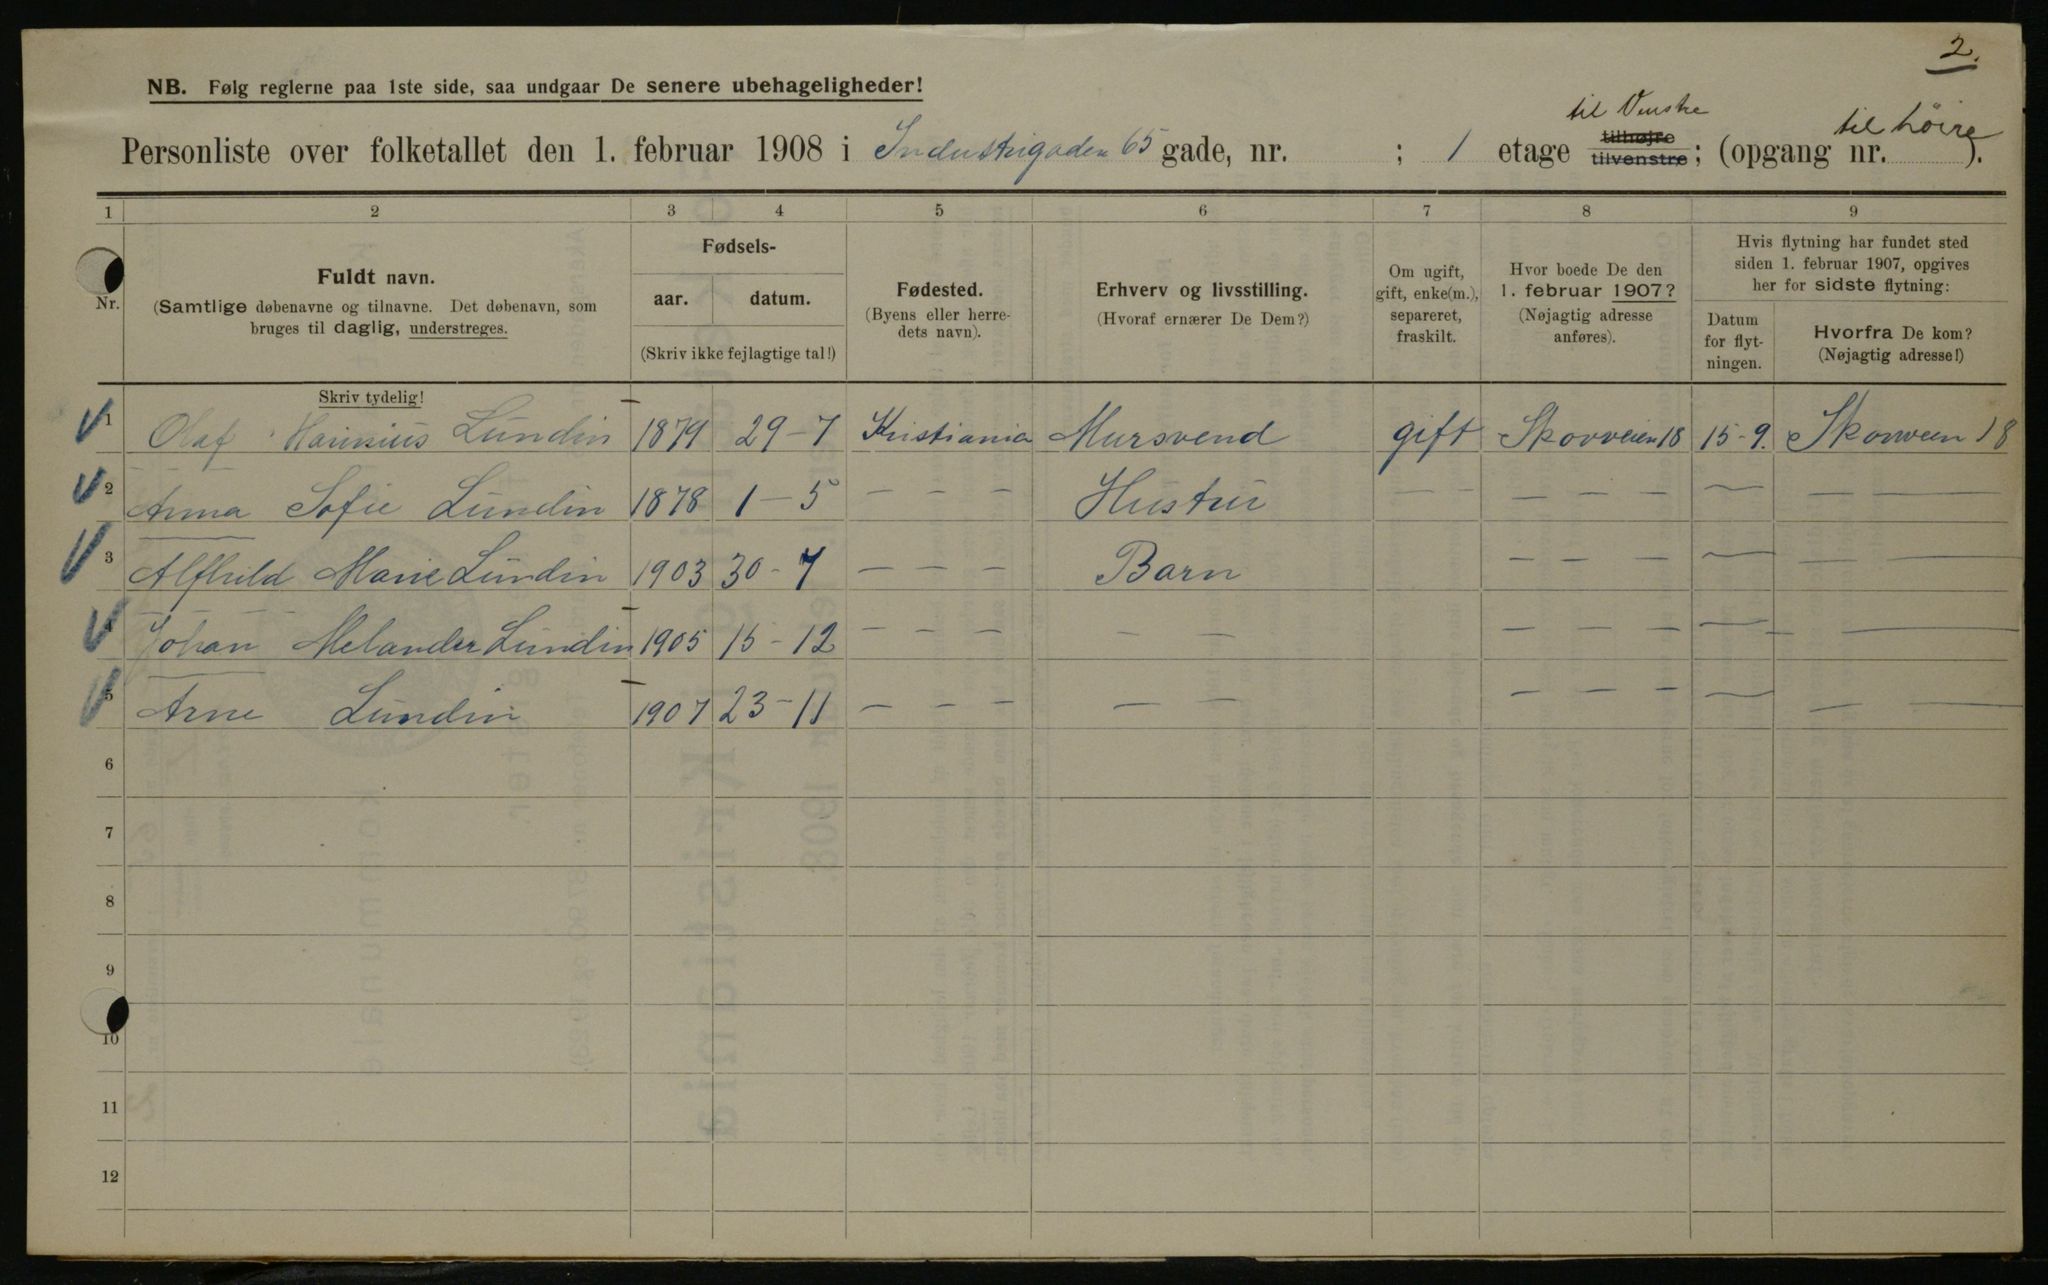 2.
NB. Følg reglerne paa 1ste side, saa undgaar De senere ubehageligheder!
til Venstre
Personliste over folketallet den 1. februar 1908 i Industrigaden 65 gade, nr. ; 1 etage tilhøjre tilvenstre; (opgang nr. til høire ).
1 2 3 4 5 6 7 8 9
Nr.
Fuldt navn.
(Samtlige døbenavne og tilnavne. Det døbenavn, som
bruges til daglig, understreges.
Skriv tydelig!
Fødsels-
aar. datum.
(Skriv ikke fejlagtige tal!)
Fødested.
(Byens eller herre-
dets navn).
Erhverv og livsstilling.
(Hvoraf ernærer De Dem?)
Om ugift,
gift, enke(m.),
separeret,
fraskilt.
Hvor boede De den
1. februar 1907?
(Nøjagtig adresse
anføres).
Hvis flytning har fundet sted
siden 1. februar 1907, opgives
her for sidste flytning:
Datum
for flyt-
ningen.
Hvorfra De kom?
(Nøjagtig adresse!)
1 Olaf Lundin 1879 29-7 Kristiania Mursvend gift Skovveien 18 15-9. Skovveien 18
2 Anna Sofie Lundin 1878 1-5 — — — Hustru — — — — — — — —
3 Alfhild Marie Lundin 1903 30-7 — — — Barn — — — — — —
4 Johan Melander Lundin 1905 15-12 — — — — — — — — — — —
5 Arne Lundin 1907 23-11 — — — — — — — — — — —
6
7
8
9
10
11
12